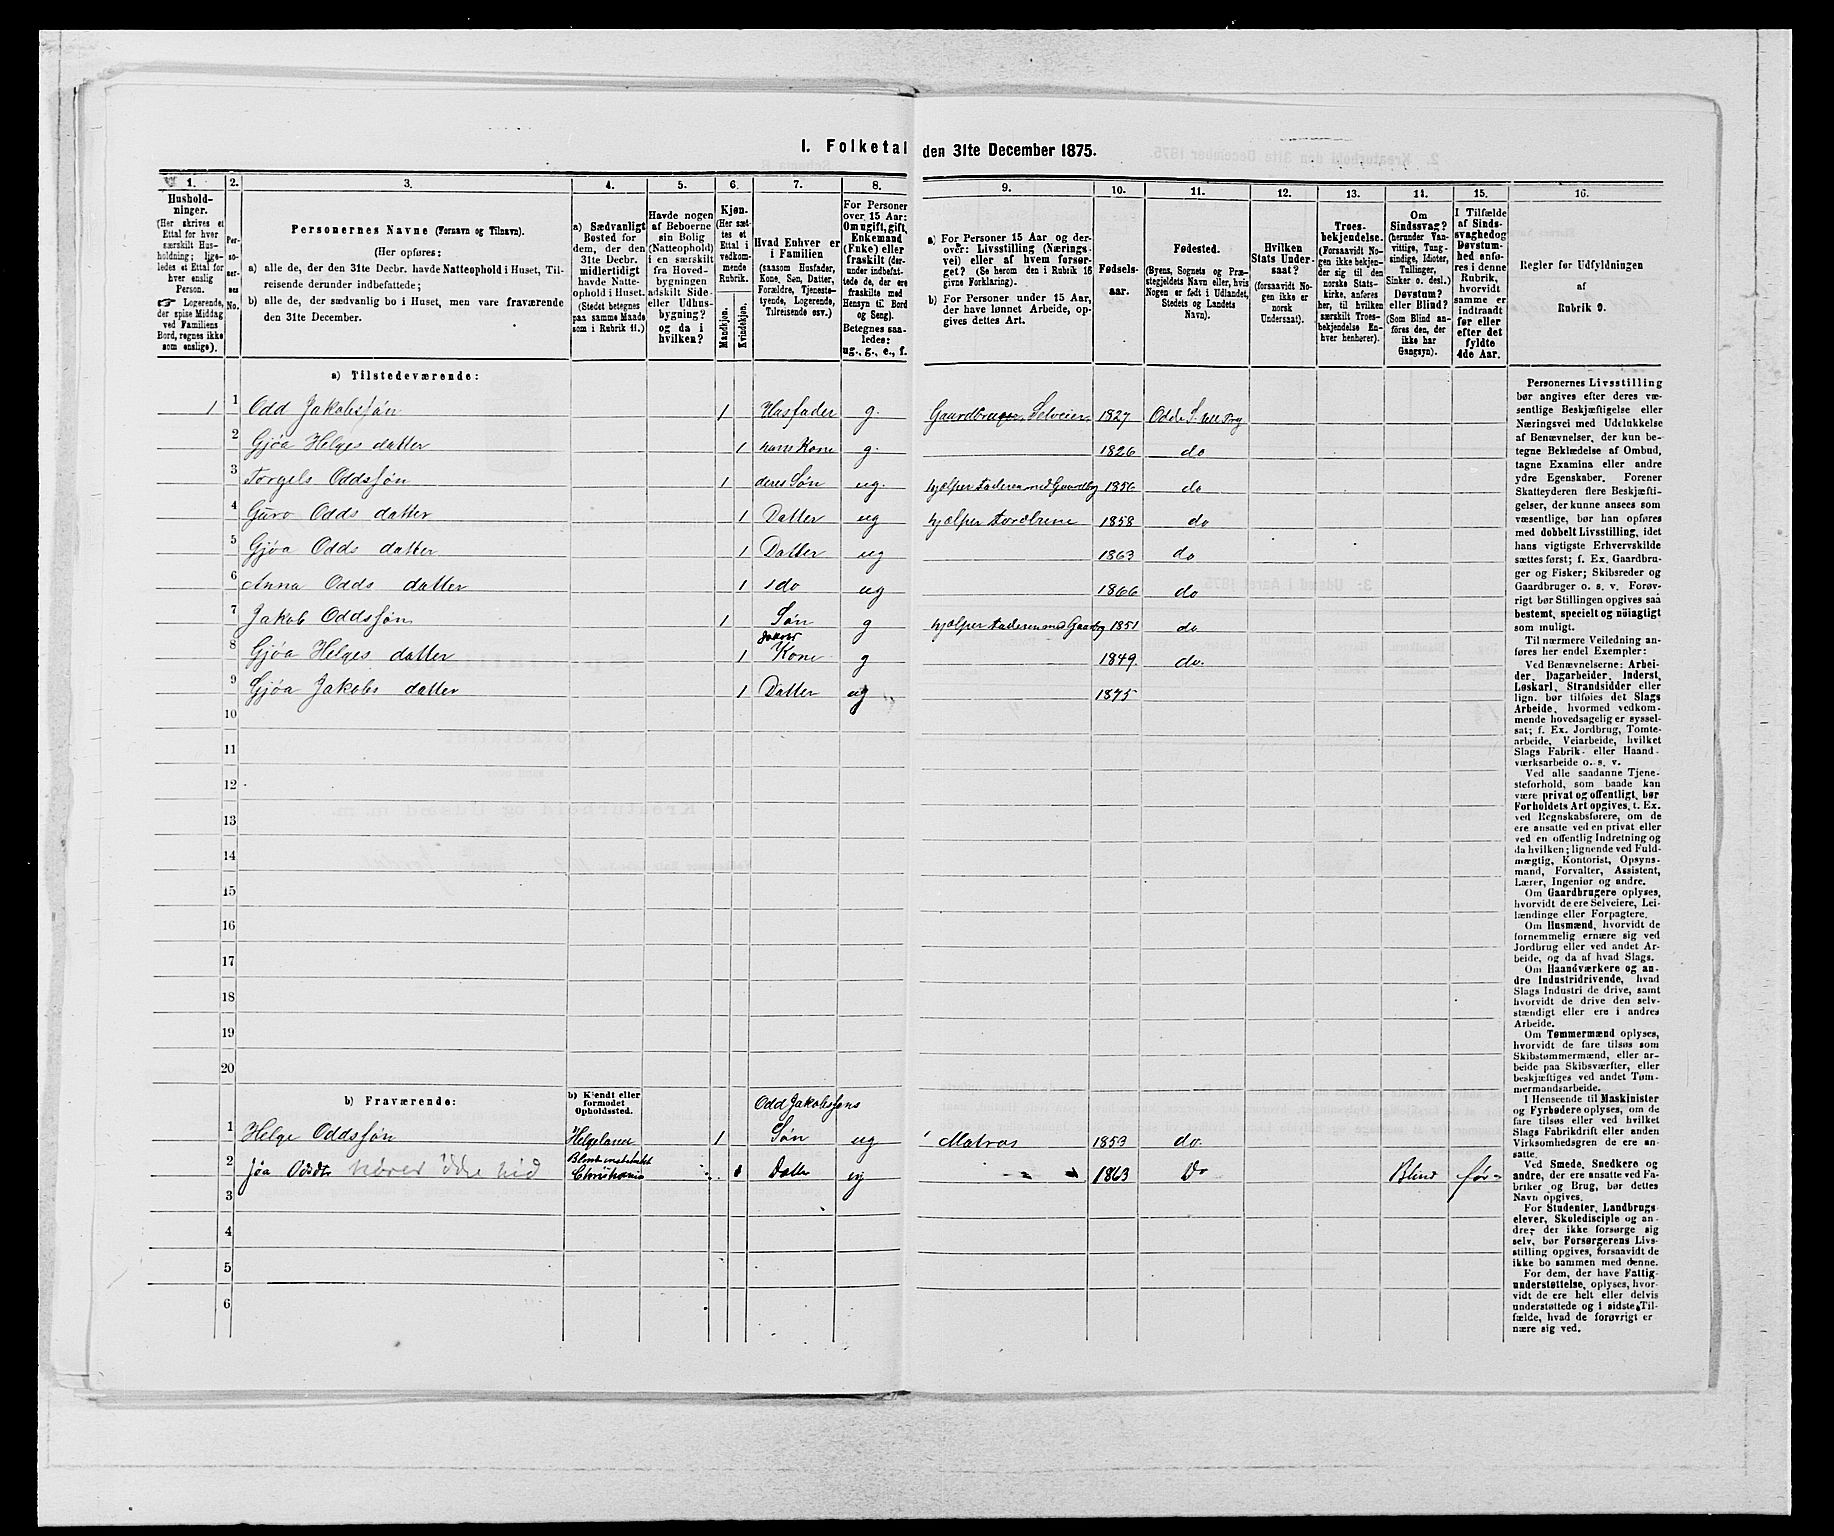 I. Folketal den 31te December 1875.
1. 2. 3. 4. 5. 6. 7. 8. 9. 10. 11. 12. 13. 14. 15. 16.
Hushold-
ninger.
(Her skrives et
Ettal for hver
særskilt Hus-
holdning; lige-
ledes et Ettal for
hver enslig
Person.
Logerende,
der spise Middag
ved Familiens
Bord, regnes ikke
som enslige).
Per-
so-
ner-
nes
No.
Personernes Navne (Fornavn og Tilnavn).
(Her opføres:
a) alle de, der den 31te Decbr. havde Natteophold i Huset, Til-
reisende derunder indbefattede;
b) alle de, der sædvanlig bo i Huset, men vare fraværende
den 31te December.
a) Sædvanligt
Bosted for
dem, der den
31te Decbr.
midlertidigt
havde Natte-
ophold i Huset.
(Stedet betegnes
paa samme Maade
som i Rubrik 11.)
Havde nogen
af Beboerne
sin Bolig
(Natteophold)
i en særskilt
fra Hoved-
bygningen
adskilt Side-
eller Udhus-
bygning?
og da i
hvilken?
Kjøn.
(Her sæt-
tes et
Ettal i
vedkom-
mende
Rubrik.
Mandkjøn.
Kvindekjøn.
Hvad Enhver er
i Familien
(saasom Husfader,
Kone, Søn, Datter,
Forældre, Tjeneste-
tyende, Logerende,
Tilreisende osv.)
For Personer
over 15 Aar:
Om ugift, gift,
Enkemand
(Enke) eller
fraskilt (der-
unde indbefat-
tede de, der ere
fraskilte med
Hensyn til Bord
og Seng).
Betegnes saa-
ledes:
ug., g., e., f.
a) For Personer 15 Aar og der-
over: Livsstilling (Nærings-
vei) eller af hvem forsør-
get? (Se herom den i Rubrik 16
givne Forklaring).
b) For Personer under 15 Aar,
der have lønnet Arbeide, op-
gives dettes Art.
Fødsels-
aar.
Fødested.
(Byens, Sognets og Præ-
stegjeldets Navn eller, hvis
Nogen er født i Udlandet,
Stedets og Landets
Navn).
Hvilken
Stats Under-
saat?
(forsaavidt No-
gen ikke er
norsk
Undersaat).
Troes-
bekjendelse.
(Forsaavidt No-
gen ikke bekjen-
der sig til den
norske Stats-
kirke, anføres
her, til hvilken
særskilt Troes-
bekjendelse En-
hver henhører).
Om
Sindssvag?
(herunder Van-
vittige, Idioter,
Tullinger,
Sinker o. desl.)
Døvstum?
eller Blind?
(Som Blind an-
føres den, der
ikke har
Gangsyn).
I Tilfælde
af Sinds-
svaghed og
Døvstum-
hed anfø-
res i denne
Rubrik,
hvorvidt
samme er
indtraadt
før eller
efter det
fyldte
4de Aar.
Regler for Udfyldningen
af
Rubrik 9.
a) Tilstedeværende:
1 1 Odd Jakobsføn 1 Husfader g. Gaardbruger, Selveier 1827
2 Gjøa Helges datter 1 hans Kone g. 1826 do
3 Torgels Oddsføn 1 deres Søn ug. 1856 do
4 Guro Odds datter 1 Datter ug hjælper 1858 do
5 Gjøa Odds datter 1 Datter ug 1863 do
6 Anna Odds datter 1 do ug 1866 do
7 Jakob Oddsføn 1 Søn g 1851 do
8 Gjøa Helges datter 1 Jakobs Kone g 1849. do.
9 Gjøa Jakobs datter 1 Datter ug 1875
10
11
12
13
14
15
16
17
18
19
20
b) Fraværende:
b) Kjendt eller
formodet
Opholdssted.
Odd Jakobsføns
1 Helge Oddsføn Helgeland 1 Søn ug Matros 1853 do.
2 Jøa Oddsdtr hører ikke hid Christiania Datter ug 1863 Do Blind før
3
4
5
6
Personernes Livsstilling
bør angives efter deres væ-
sentlige Beskjæftigelse eller
Næringsvei med Udelukkelse
af Benævnelser, der kun be-
tegne Beklædelse af Ombud,
tagne Examina eller andre
ydre Egenskaber. Forener
Skatteyderen flere Beskjæfti-
gelser, der kunne ansees som
væsentlige, bør han opføres
med dobbelt Livsstilling, idet
hans vigtigste Erhvervskilde
sættes først; f. Ex. Gaardbru-
ger og Fisker; Skibsreder og
Gaardbruger o. s. v. Forøv-
rigt bør Stillingen opgives saa
bestemt, specielt og nøiagtigt
som muligt.
Til nærmere Veiledning an-
føres her endel Exempler:
Ved Benævnelserne: Arbei-
der, Dagarbeider, Inderst,
Løskarl, Strandsidder eller
lign. bør tilføies det Slags
Arbeide, hvormed vedkom-
mende hovedsagelig er syssel-
sat; f. Ex. Jordbrug, Tomte-
arbeide, Veiarbeide, hvilket
Slags Fabrik- eller Haand-
værksarbeide o. s. v.
Ved alle saadanne Tjene-
steforhold, som baade kan
være privat og offentligt, bør
Forholdets Art opgives, t. Ex.
ved Regnskabsførere, om de
ere ansatte ved en privat eller
ved en offentlig Indretning og
da hvilken; lignende ved Fuld-
mægtig, Kontorist, Opsyns-
mand, Forvalter, Assistent,
Lærer, Ingeniør og andre.
Om Gaardbrugere oplyses,
hvorvidt de ere Selveiere, Lei-
lændinge eller Forpagtere.
Om Husmænd, hvorvidt de
fornemmelig ernære sig ved
Jordbrug eller ved andet Ar-
beide, og da af hvad Slags.
Om Haandværkere og an-
dre Industridrivende, hvad
Slags Industri de drive, samt
hvorvidt de drive den selv-
stændigt eller ere i andres
Arbeide.
Om Tømmermænd oplyses,
hvorvidt de fare tilsøs som
Skibstømmermænd, eller ar-
beide paa Skibsværfter, eller
beskjæftiges ved andet Tøm-
mermandsarbeide.
I Henseende til Maskinister
og Fyrbødere oplyses, om de
fare tilsøs eller ved hvilket
Slags Fabrikdrift eller anden
Virksomhedsgren de ere an-
satte.
Ved Smede, Snedkere og
andre, der ere ansatte ved Fa-
briker og Brug, bør dettes
Navn opgives.
For Studenter, Landbrugs-
elever, Skoledisciple og an-
dre, der ikke forsørge sig
selv, bør Forsørgerens Livs-
stilling opgives, forsaavidt de
ikke bo sammen med denne.
For dem, der have Fattig-
understøttelse, oplyses, hvor-
vidt de ere helt eller delvis
understøttede og i sidste Til-
fælde, hvad de forøvrigt er
nære sig ved.